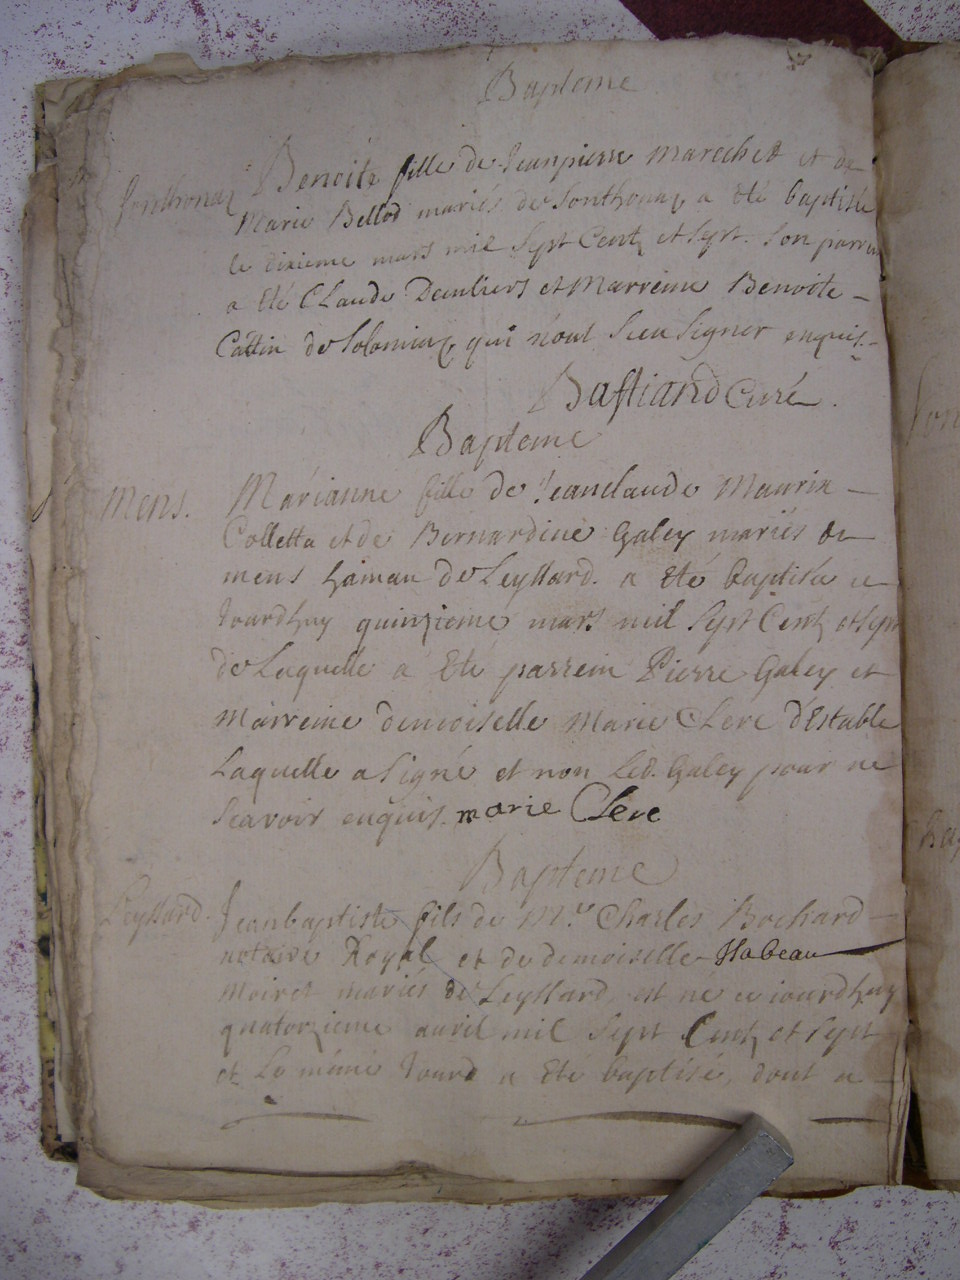 Bapteme
Sonthonax Benoite fille de Jeanpierre Marechet et de
Marie Bellod mariés de Sonthonax a eté baptisée
le dixieme mars mil Sept Centz et Sept. Son parrein
a Eté CLaude Deuliers et Marreine Benoite –
Cattin de Solomiax qui n'ont Sceu Signer enquis.–
Bastiand Curé.
Bapteme
Mens. Marianne fille de Jeanclaude Maurin –
Colletta et de Bernardine Galey mariés de
mens hameau de Leyssard. a Eté baptisée ce
Jourdhuy quinzieme mars mil Sept Centz et Sept
de Laquelle a Eté parrein Pierre Galey et
Marreine demoiselle Marie CLere d'Estable
Laquelle a Signé et non Led. Galey pour ne
Scavoir enquis. marie Clere
Bapteme
Leyssard. Jeanbaptiste fils de Mr. Charles Bochard –
notaire Royal et de demoiselle Isabeau
Moiret mariés de Leyssard, est né ce iourdhuy
quatorzieme auril mil Sept Centz et Sept
et Le même Jour a Eté baptisé, dont a –